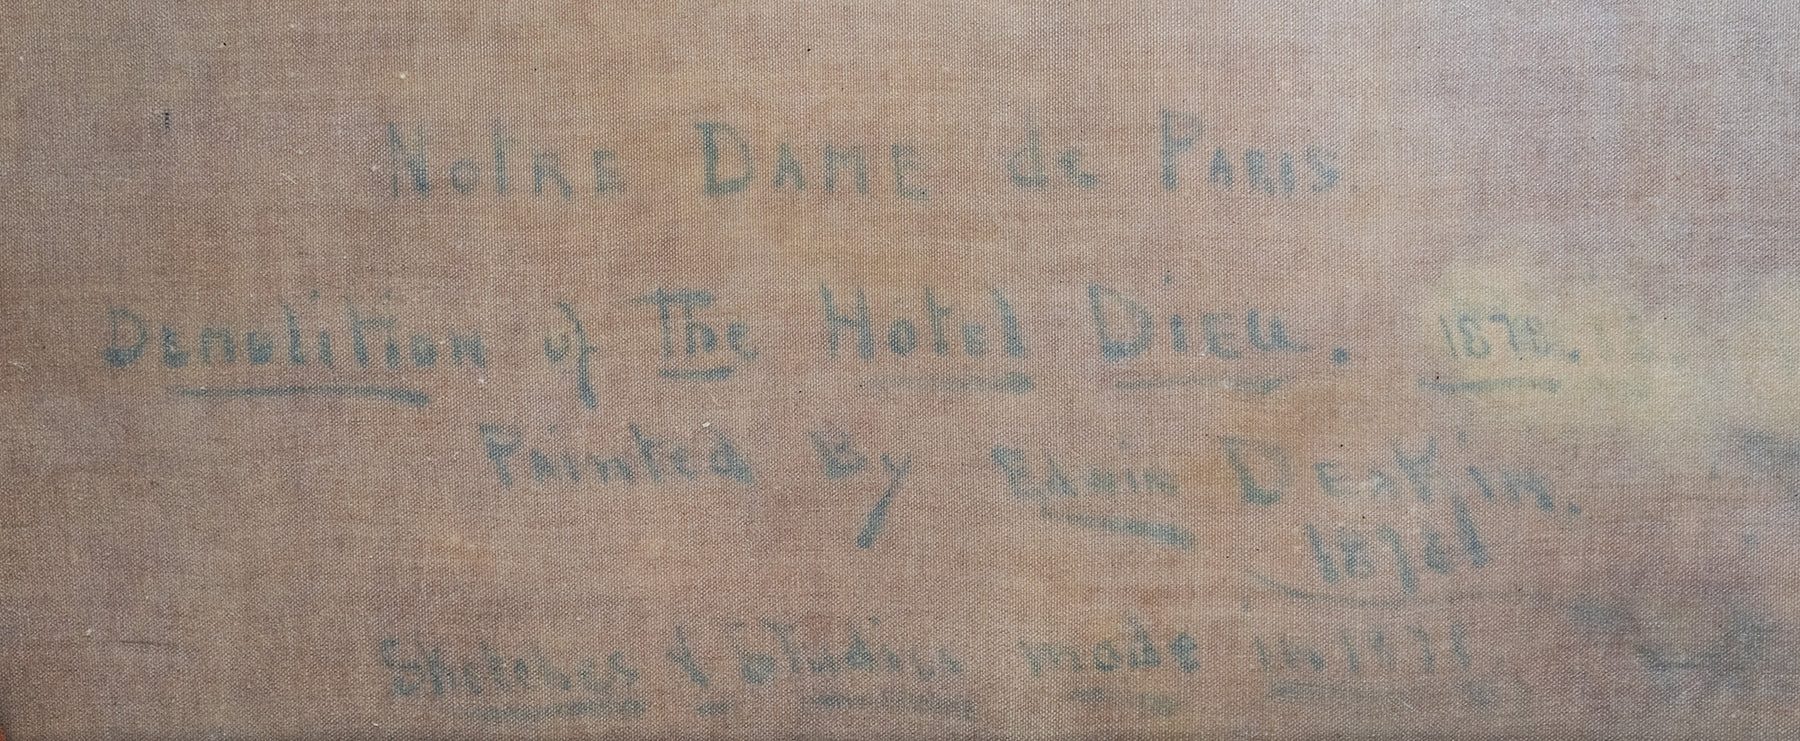 NOTRE DAME de PARIS
Demolition of The Hotel DiEU.
Painted By Edwin DEAKin.
Sketches & Studies made in